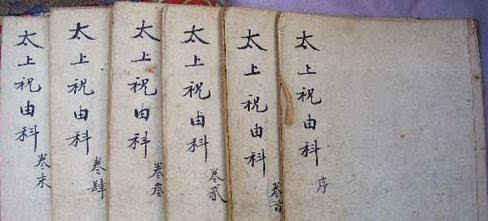 太上祝由科
序
太上祝由科
卷首
太上祝由科
卷貳
太上祝由科
卷叁
太上祝由科
卷肆
太上祝由科
卷末